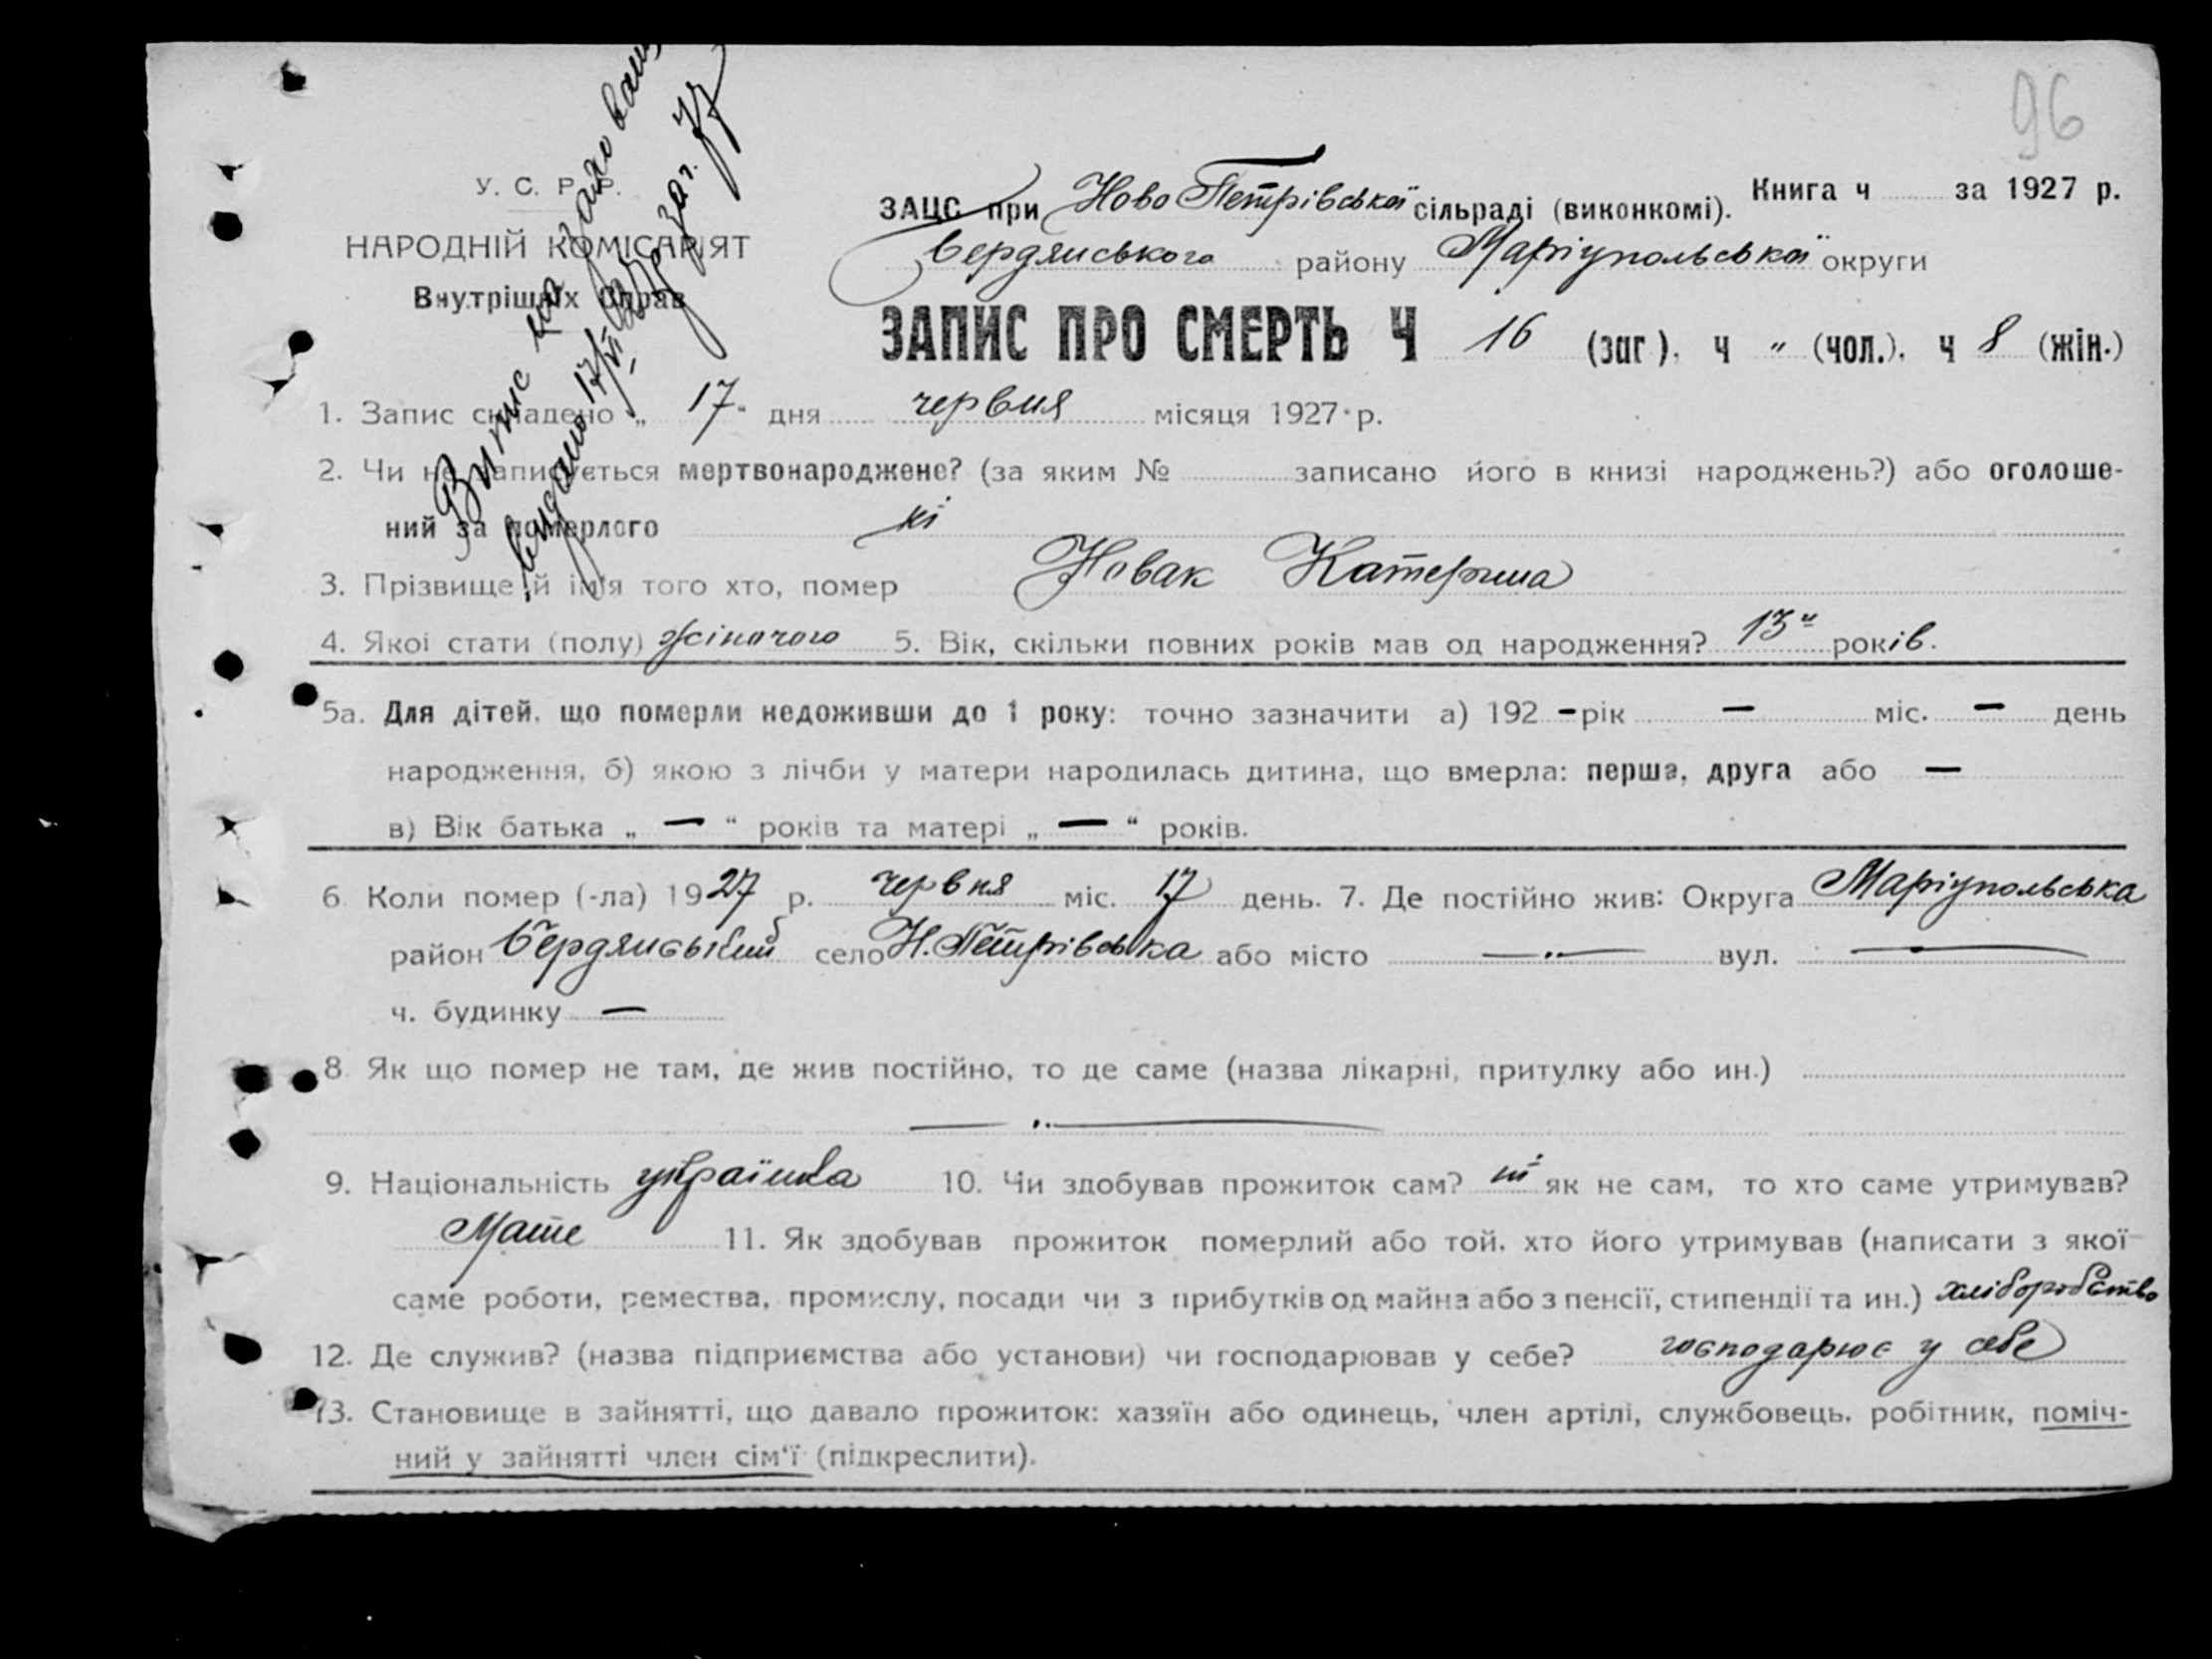 96
У. С. Р. Р.
НАРОДНІЙ КОМІСАРІЯТ
Внутрішніх Справ
Витис на
видано 17/VI 27р заг. 77
Книга ч за 1927 р.
ЗАЦС при Ново Петрівської сільраді (виконкомі).
Бердянського району Маріупольської округи
ЗАПИС ПРО СМЕРТЬ Ч 16 (заг). ч „ (чол.). ч 8 (жін.)
1. Запис складено „ 17 " дня червня місяця 1927 р.
2. Чи не записується мертвонароджене? (за яким № записано його в книзі народжень?) або оголоше-
ний за померлого ні
3. Прізвище й ім'я того хто, помер Новак Катерина
4. Якої стати (полу) жіночого 5. Вік, скільки повних років мав од народження? 13 " років.
5а. Для дітей, що померли недоживши до 1 року: точно зазначити а) 192 – рік — міс. — день
народження, б) якою з лічби у матери народилась дитина, що вмерла: перша, друга або —
в) Вік батька „ — " років та матері „ — " років.
6 Коли помер (-ла) 1927 р. червня міс. 17 день. 7. Де постійно жив: Округа Маріупольська
район Бердянський село Н.Петрівська або місто — вул. —
ч. будинку —
8. Як що помер не там, де жив постійно, то де саме (назва лікарні, притулку або ин.)
—
9. Національність українка 10. Чи здобував прожиток сам? ні як не сам, то хто саме утримував?
Мате 11. Як здобував прожиток померлий або той, хто його утримував (написати з якої
саме роботи, ремества, промислу, посади чи з прибутків од майна або з пенсії, стипендії та ин.) хліборобство
12. Де служив? (назва підприємства або установи) чи господарював у себе? господарює у себе
13. Становище в зайнятті, що давало прожиток: хазяїн або одинець, член артілі, службовець, робітник, поміч-
ний у зайнятті член сім'ї (підкреслити).